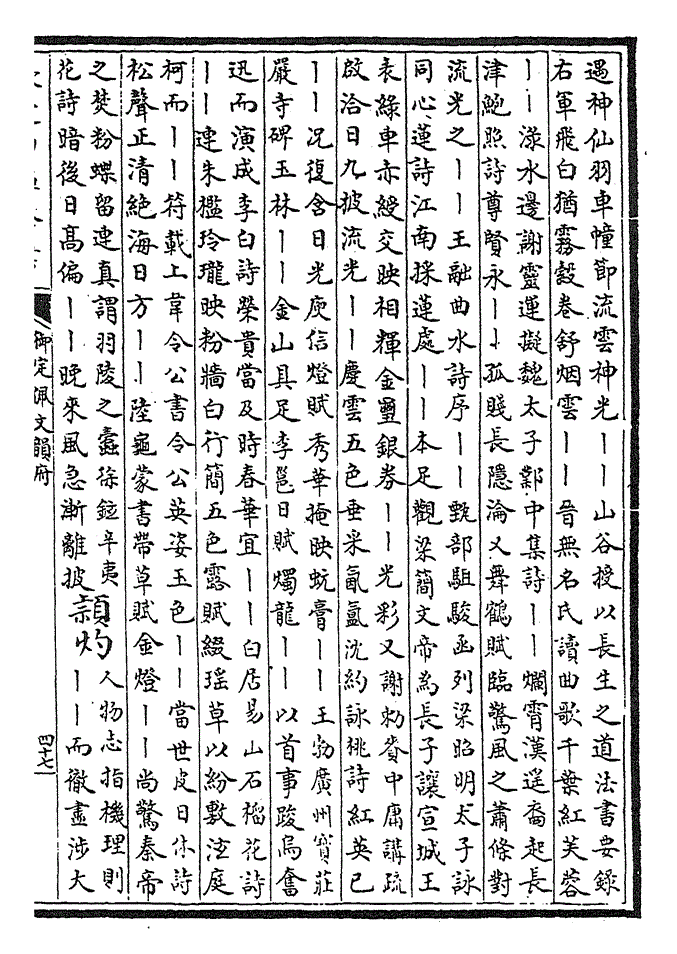 遇神仙羽車幢節流雲神光丨丨山谷授以長生之道法書要錄
右軍飛白猶霧縠卷舒烟雲丨丨晉無名氏讀曲歌千葉紅芙蓉
丨丨淥水邊謝靈運擬魏太子鄴中集詩丨丨爛霄漢遥裔起長
津鮑照詩尊賢永丨丨孤賤長隱淪又舞鶴賦臨驚風之蕭條對
流光之丨丨王融曲水詩序丨丨甄部駔駿函列梁昭明太子詠
同心蓮詩江南採蓮處丨丨本足觀梁簡文帝為長子讓宣城王
表綠車赤綬交映相輝金璽銀券丨丨光彩又謝勅賚中庸講疏
啟洽日九披流光丨丨慶雲五色垂采氤氳沈約詠桃詩紅英已
丨丨况復含日光庾信燈賦秀華掩映蚖膏丨丨王勃廣州寶莊
嚴寺碑玉林丨丨金山具足李邕日賦燭龍丨丨以首事踆烏奮
迅而演成李白詩榮貴當及時春華宜丨丨白居易山石榴花詩
丨丨連朱檻玲瓏映粉牆白行簡五色露賦綴瑶草以紛敷泫庭
柯而丨丨符載上韋令公書令公英姿玉色丨丨當世皮日休詩
松聲正清絶海日方丨丨陸龜蒙書帶草賦金燈丨丨尚驚秦帝
之焚粉蝶留連真謂羽陵之蠧徐鉉辛夷
花詩暗後日高偏丨丨晚來風急漸離披
頴灼
人物志指機理則
丨丨而徹盡涉大
御定佩文韻府
四十七